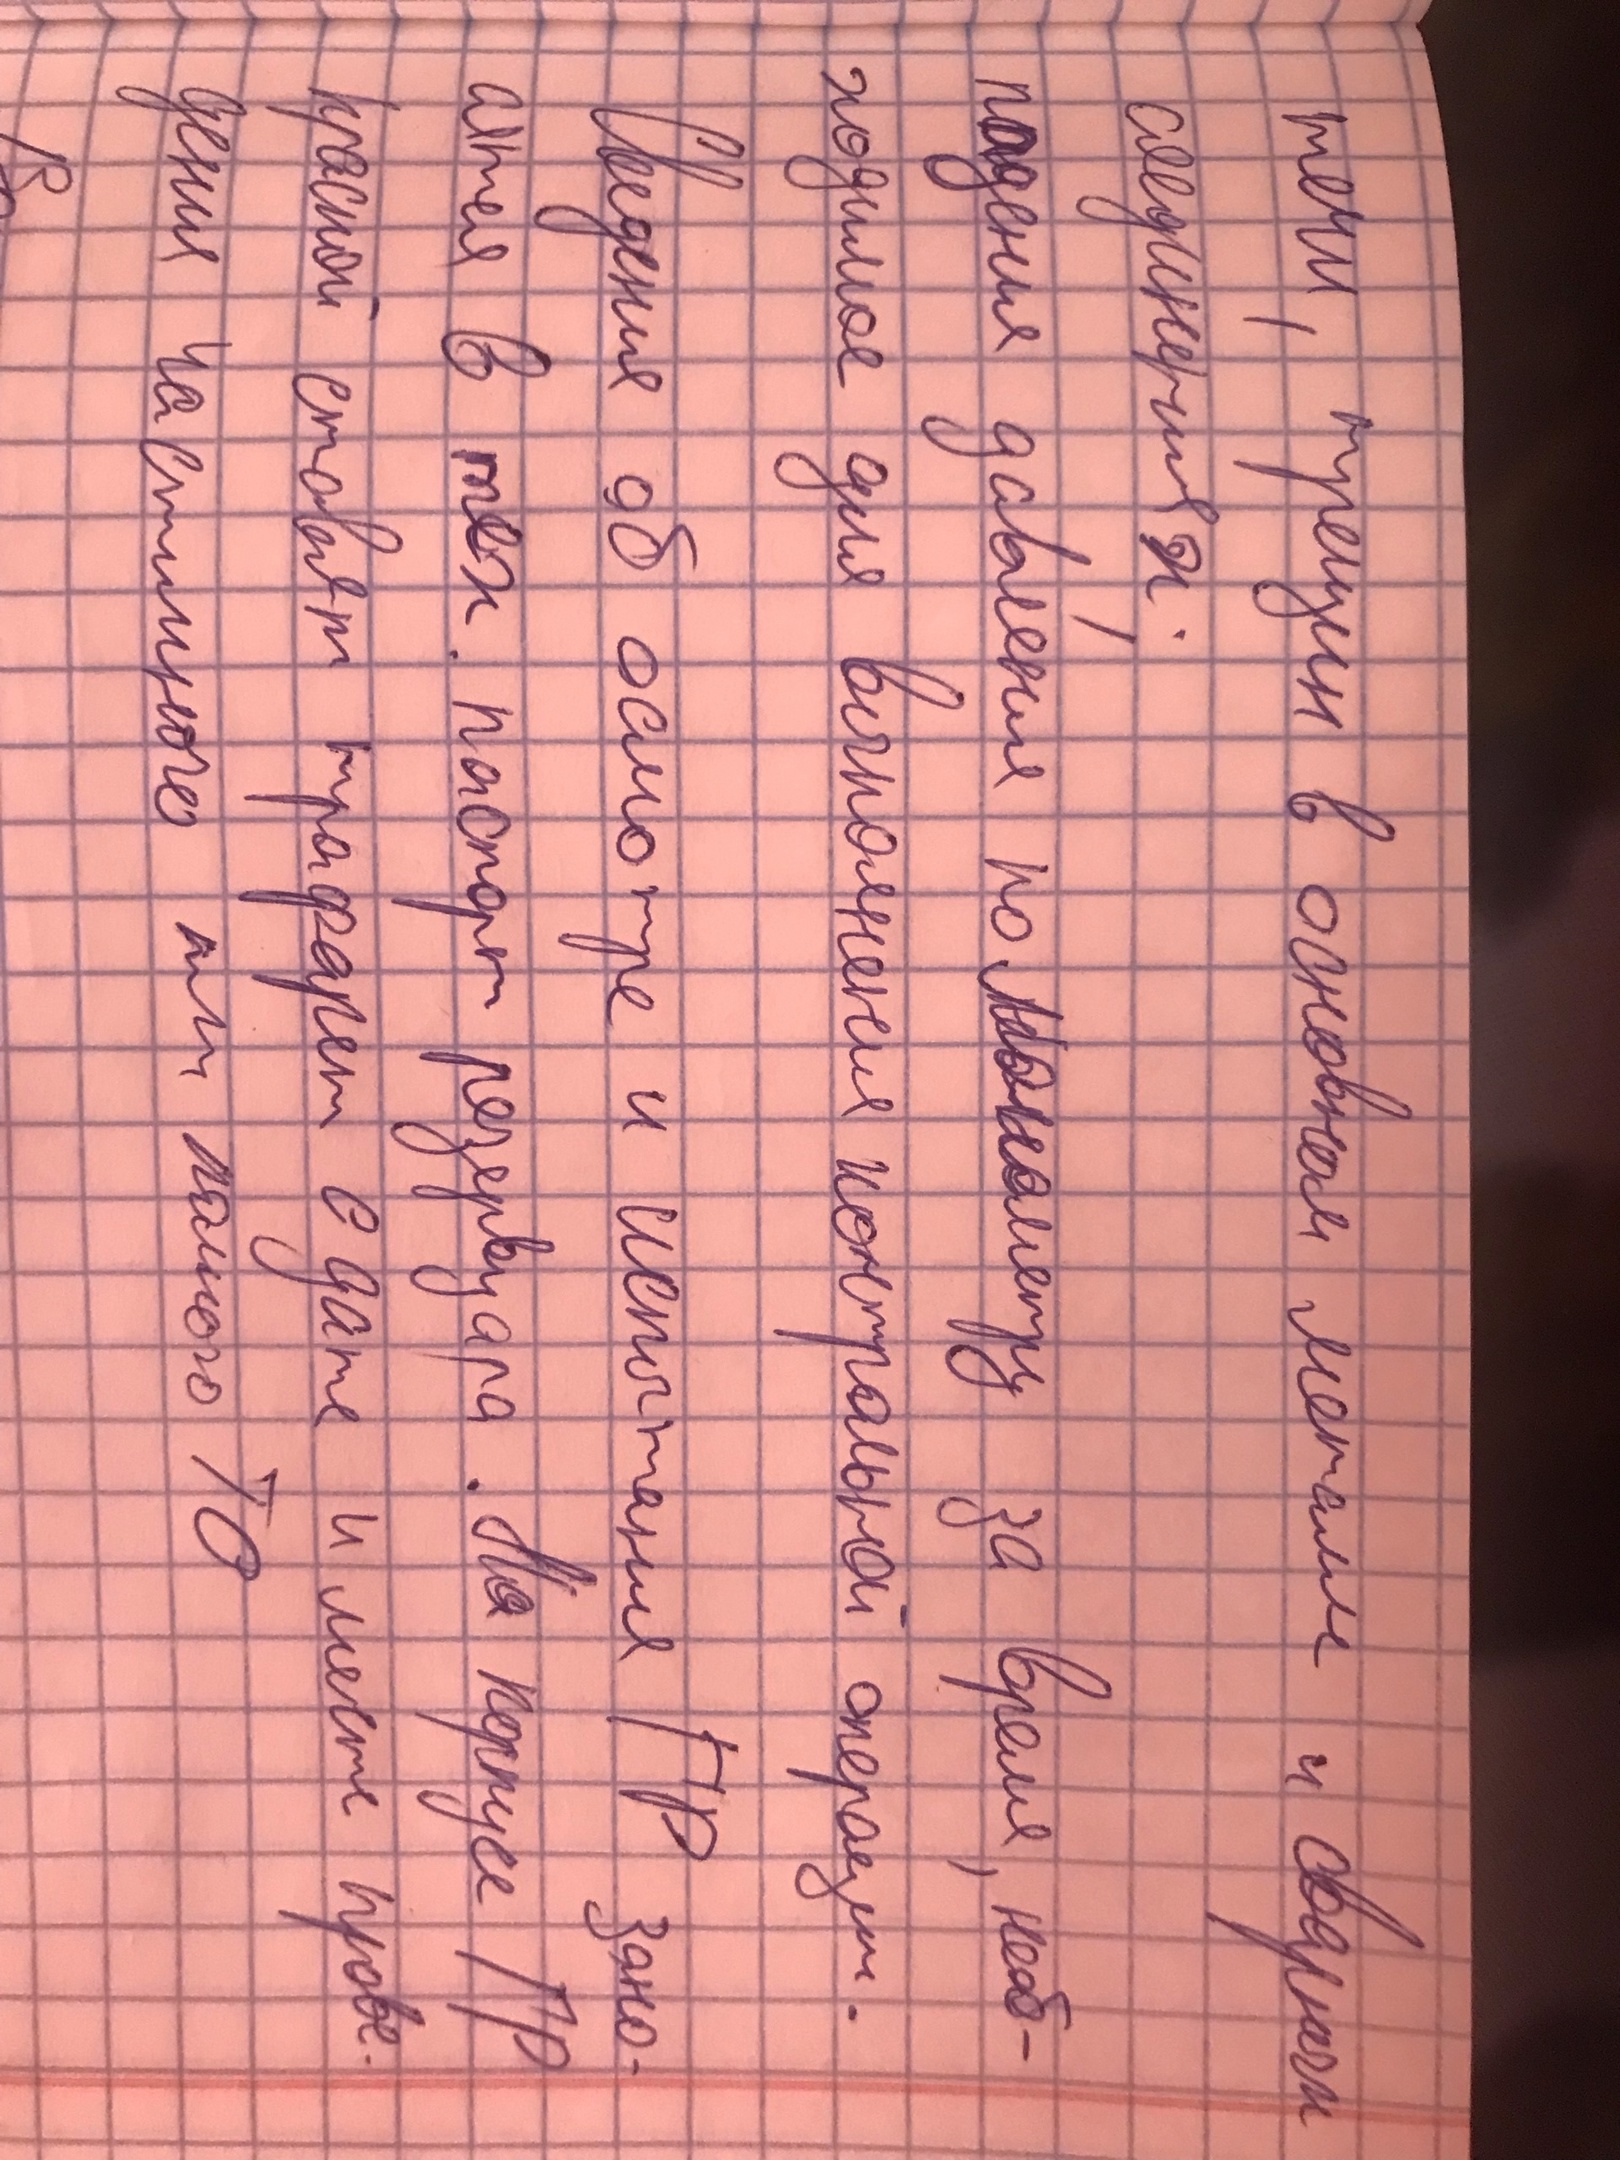 течи, трещин в основном металле и сварных
соединениях;
падения давления по манометру за время, необ-
ходимое для выполнения контрольной операции.
Сведения об осмотре и испытания ГР зано-
сятся в тех. паспорт резервуара. На корпусе ГР
краской ставят трафарет о дате и месте прове-
дения частичного или полного ТО